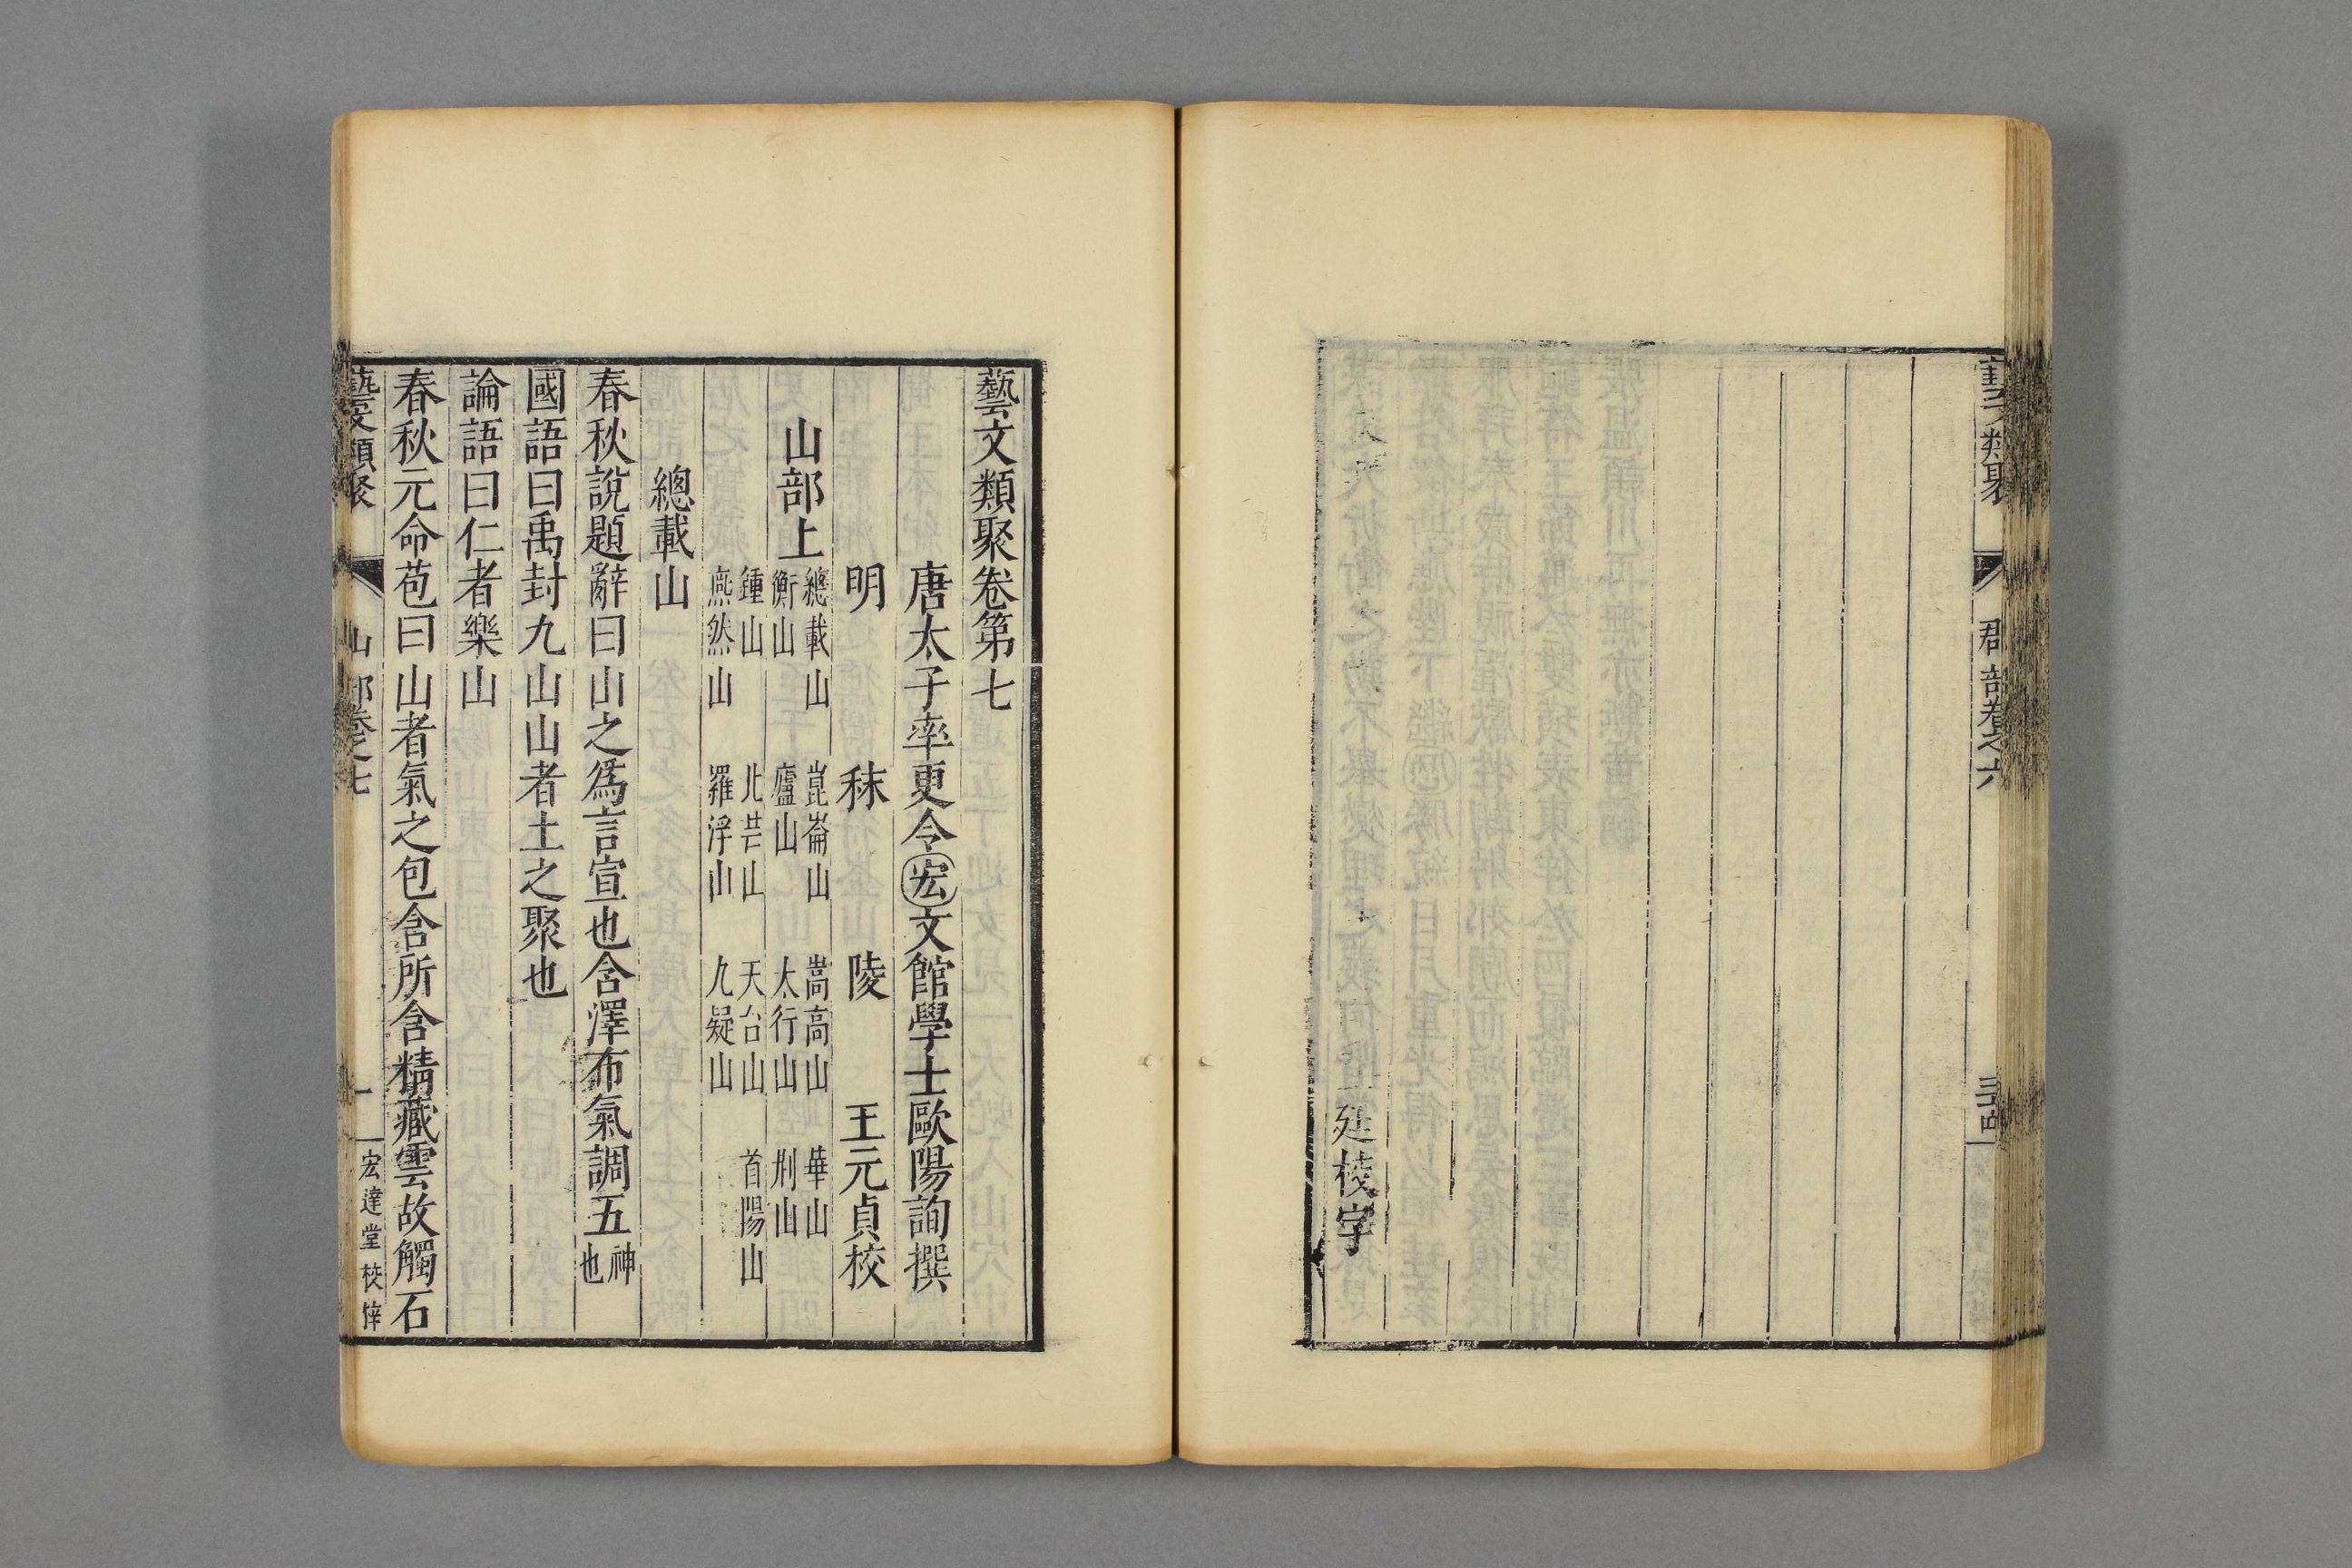 藝文類聚
郡部卷之六
三十四
廷棱字
藝文類聚卷第七
唐太子率更令宏文館學士歐陽詢撰
明 秣 陵 王元貞校
山部上 總載山 崑崙山 嵩高山 華山
衡山 廬山 太行山 荆山
鍾山 北芒山 天台山 首陽山
燕然山 羅浮山 九疑山
總載山
春秋說題辭曰山之爲言宣也含澤布氣調五神也
國語曰禹封九山山者土之聚也
論語曰仁者樂山
春秋元命苞曰山者氣之包含所含精藏雲故觸石
藝文類聚
山部卷之七
一
宏達堂校